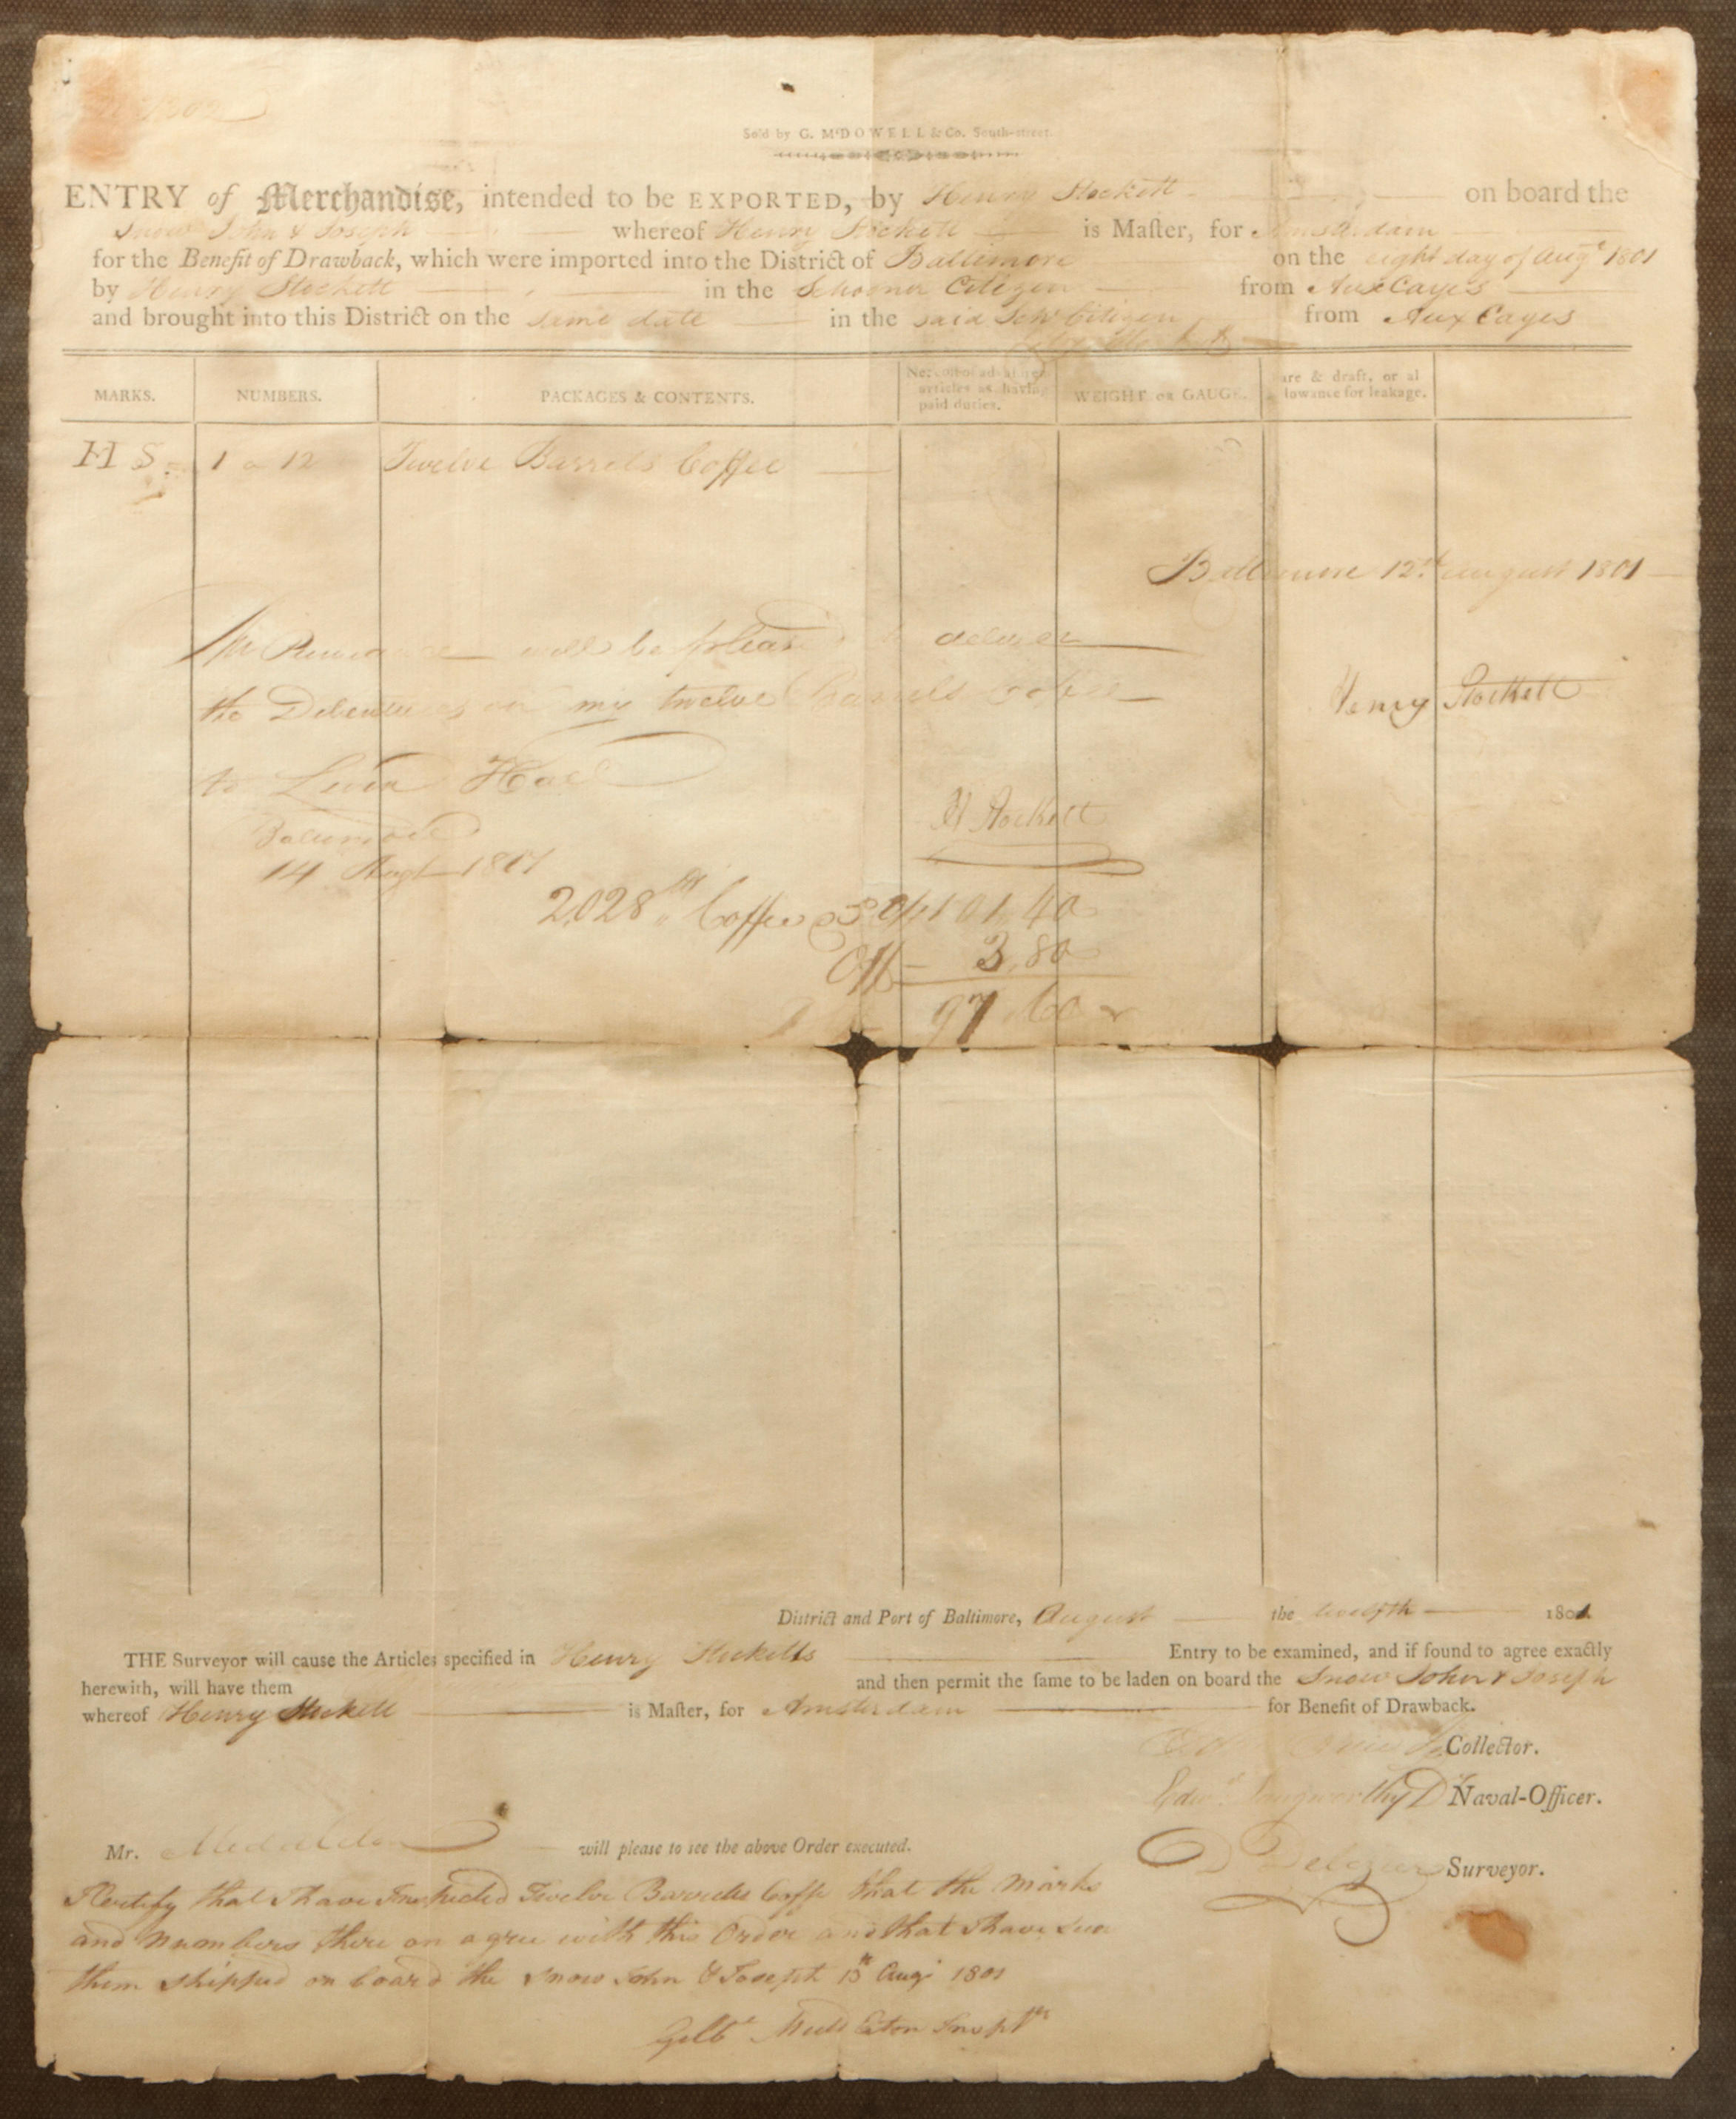 Sold by G. McDOWELL & Co. South-street.
ENTRY of Merchandise, intended to be EXPORTED, by Henry Stockett on board the
Snow John & Joseph whereof Henry Stockett is Master, for Amsterdam
for the Benefit of Drawback, which were imported into the District of Baltimore on the eight day of Augt 1801
by Henry Stockett in the Schooner Citizen from Aux Cayes
and brought into this District on the same date in the said Schr Citizen from Aux Cayes
MARKS. NUMBERS. PACKAGES & CONTENTS. articles as having paid duties. WEIGHT or GAUGE. are & draft, or al lowance for leakage.
H S. 1 a 12 Twelve Barrels Coffee
Baltimore 12th august 1801
will be pleased to deliver
the Debentures on my twelve Barrels Coffee
Henry Stockett
to
H Stockett
Baltimore
14 Augt 1801
2028 lb Coffee @ 5 101.40
Off 3.80
97.60
District and Port of Baltimore, August the twelfth 1801
THE Surveyor will cause the Articles specified in Henry Stocketts Entry to be examined, and if found to agree exactly
herewith, will have them and then permit the same to be laden on board the Snow John & Joseph
whereof Henry Stockett is Master, for Amsterdam for Benefit of Drawback.
Collector.
Edwd Langworthy D Naval-Officer.
Mr. will please to see the above Order executed.
Surveyor.
I Certify that I have Inspected Twelve Barrels Coffe that the Marks
and Numbers there on agree with this Order and that I have seen
them shipped on board the Snow John & Joseph 15th Augt 1801